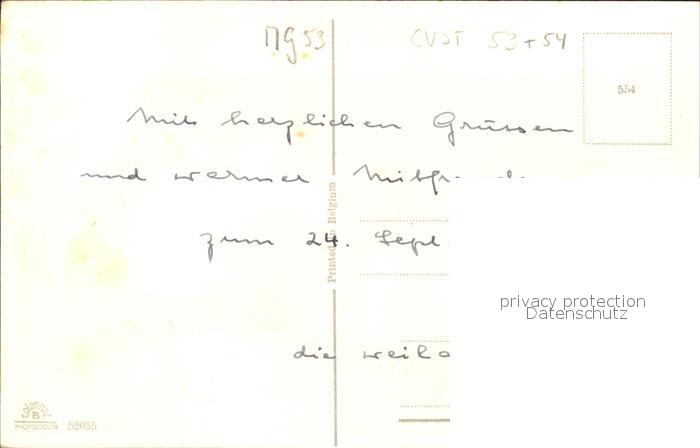 MG53 CVJT 53+54
554
Mit herzlichen Grüssen
und warmer
zum 24. Sept.
Printed in Belgium
privacy protection
Datenschutz
die
PHOTOCOLOR 52035